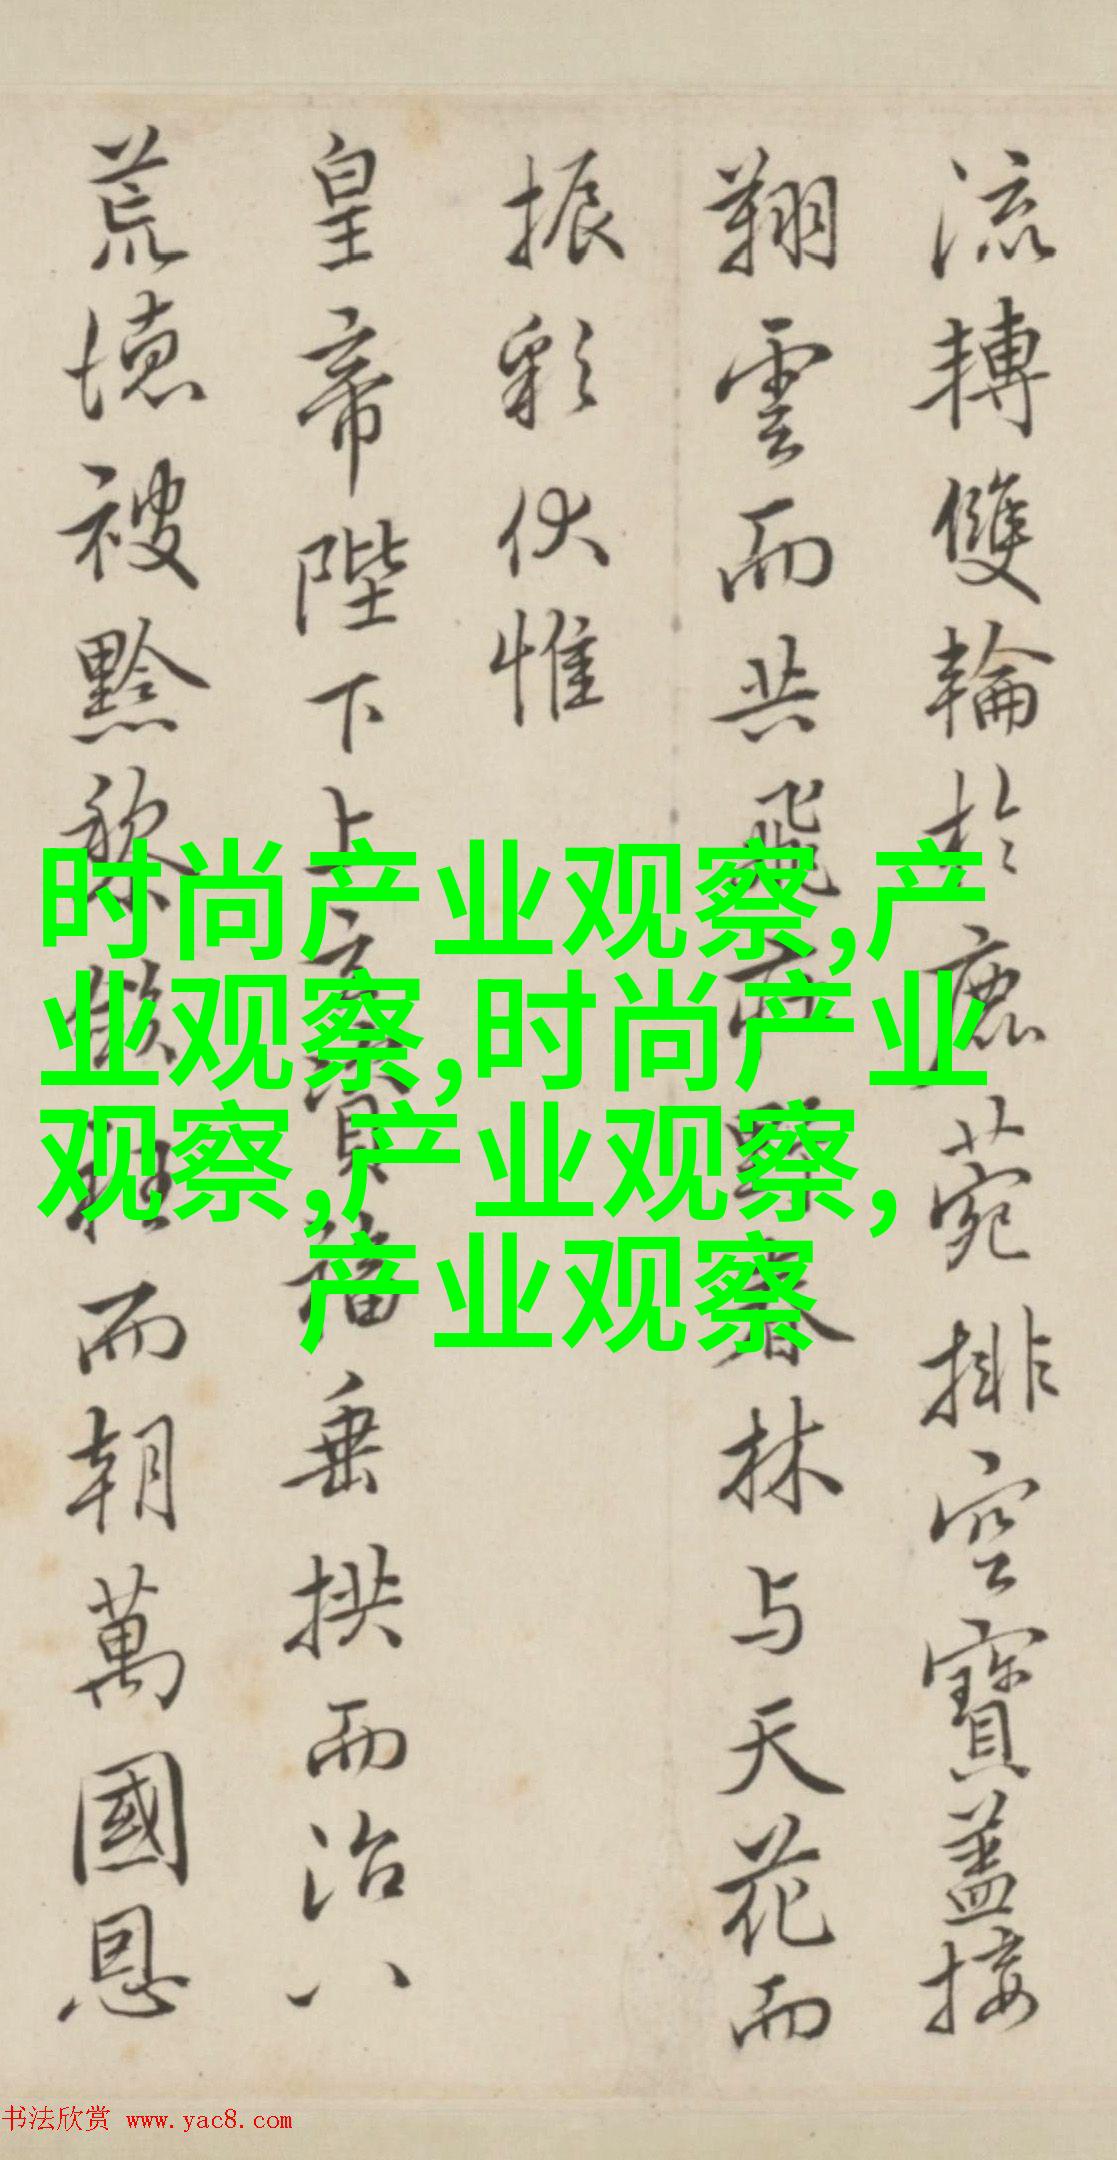 流轉雙輪於鹿菀排空寶蓋接
翔雲而共飛莊野春林与天花而
振彩伏惟
皇帝陛下上玄資福垂拱而治八
荒德被黔黎斂衽而朝萬國恩
时尚产业观察,产
业观察,时尚产业
观察,产业观察,
产业观察
书法欣赏 www.yac8.com